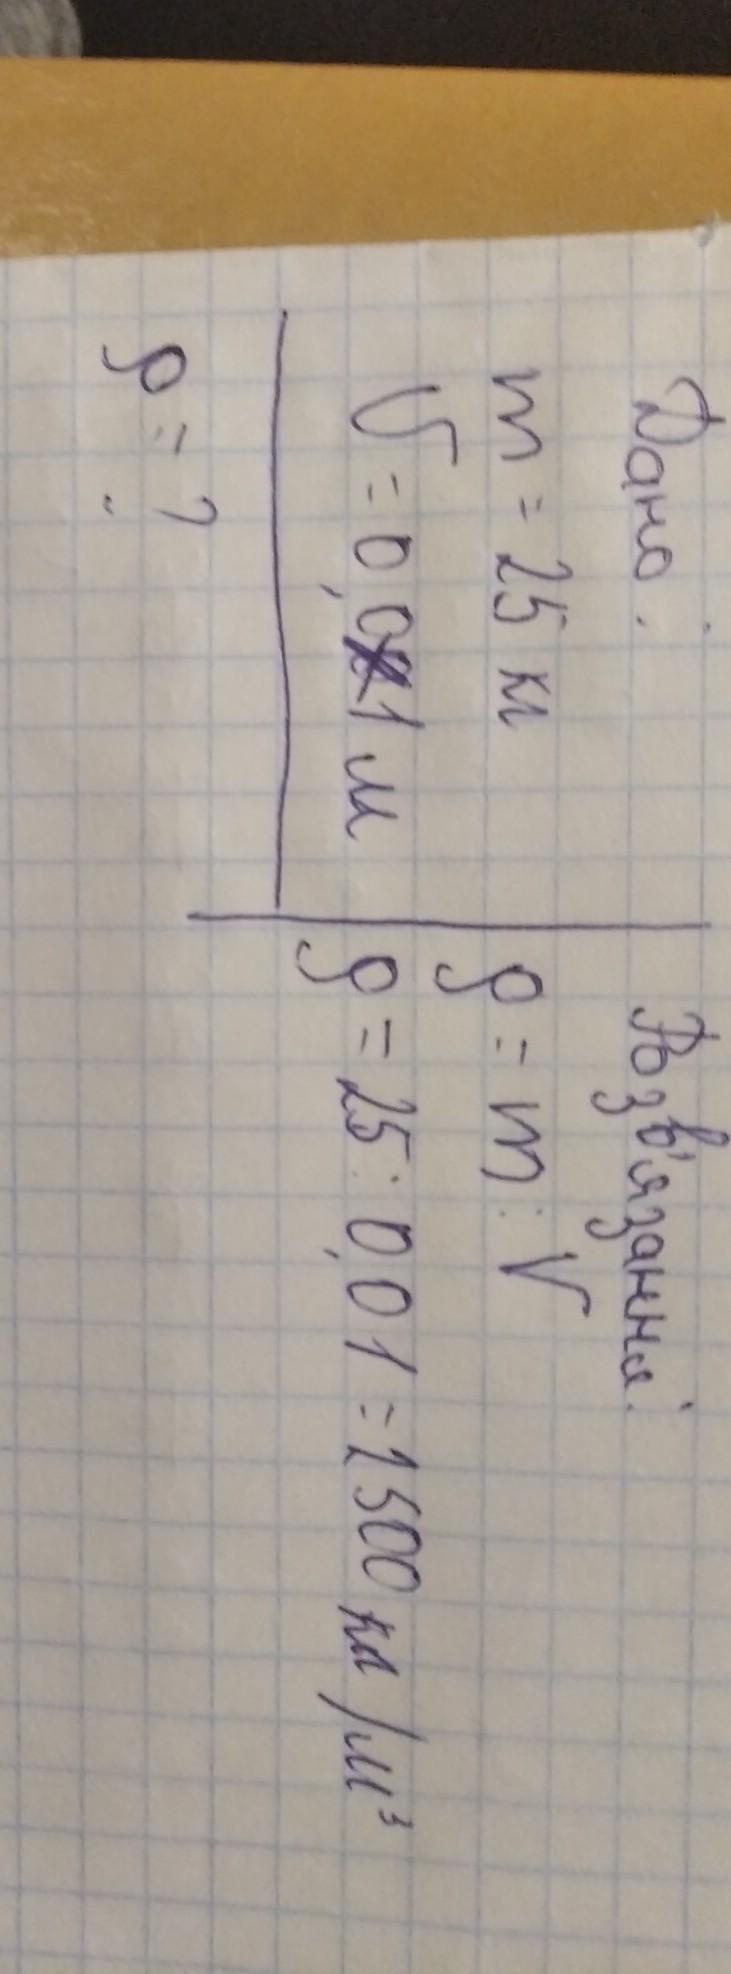 Дано:
m = 25 кг
V = 0,01 м
ρ = ?
Розв'язання:
ρ = m : V
ρ = 25 : 0,01 = 2500 кг/м³